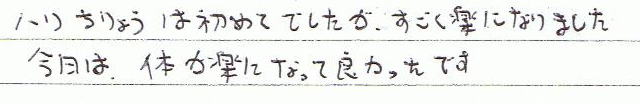 ハリちりょうは初めてでしたが、すごく楽になりました
今日は、体が楽になって良かったです